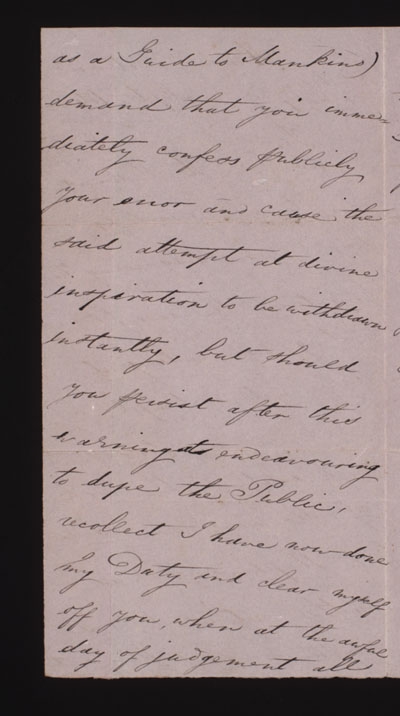 as a Guide to Mankind)
demand that you imme=
diately confess publicly
your error and cause the
said attempt at divine
inspiration to be withdrawn
instantly, but should
you persist after this
warning endeavouring
to dupe the Public,
recollect I have now done
my Duty and clear myself
off you, when at the awful
day of judgement all